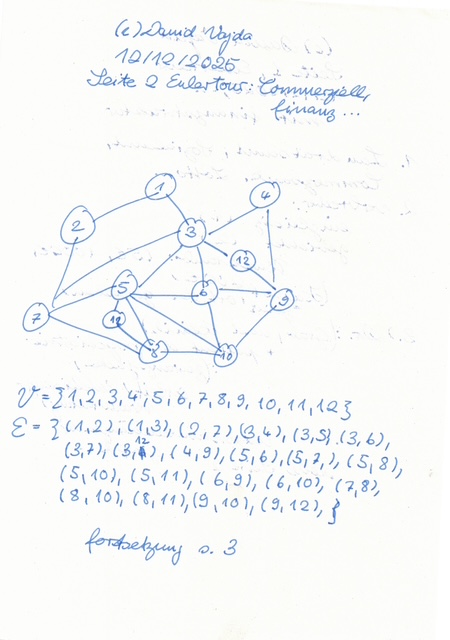 (c) David Vajda
12/12/2025
Seite 2 Eulertour: Commerzielle,
Finanz...
1
4
2
3
12
5
6
9
7
11
8
10
V = {1,2,3,4,5,6,7,8,9,10,11,12}
E = {(1,2), (1,3), (2,7), (3,4), (3,5), (3,6),
(3,7), (3,12), (4,9), (5,6), (5,7,), (5,8),
(5,10), (5,11), (6,9), (6,10), (7,8),
(8,10), (8,11), (9,10), (9,12), }
fortsetzung s. 3